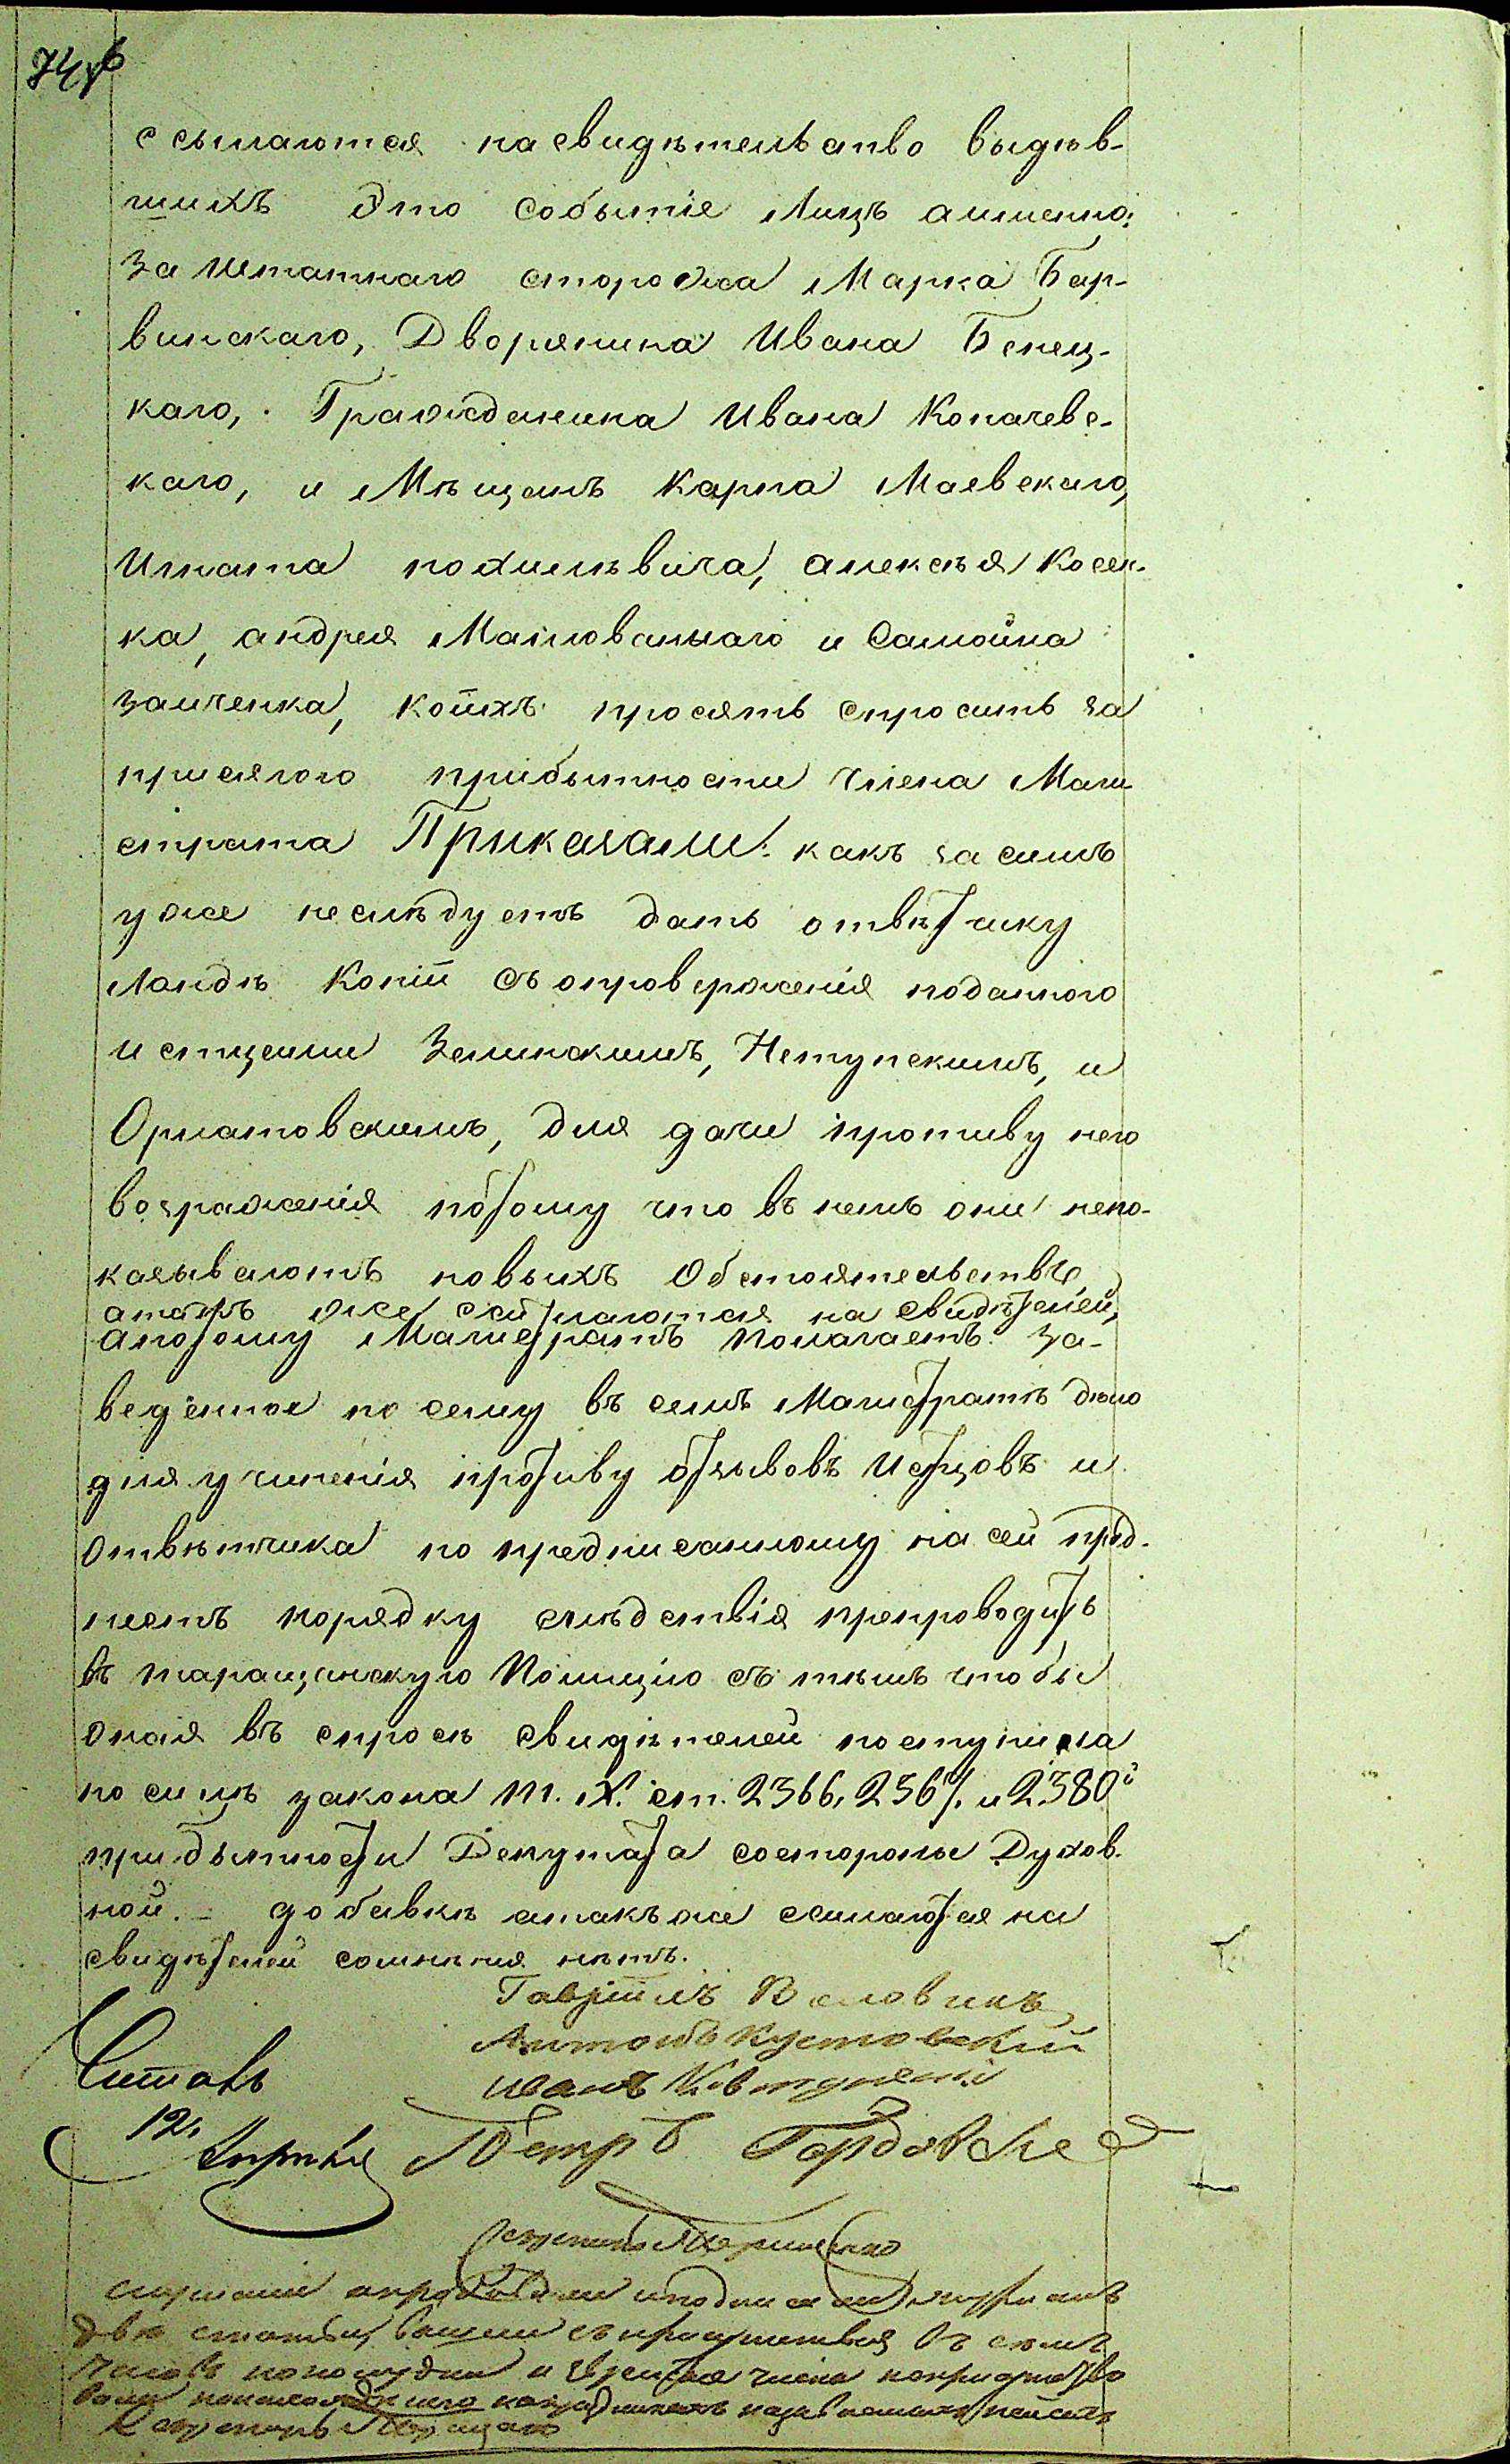 74 об
ссылаются на свидѣтельство выдѣв-
шихъ Это событіе Лицъ аименно:
заштатнаго сторожа Марка Бар-
винскаго, Дворянина Ивана Бенец-
каго, Гражданина Ивана Копачевс-
каго, и Мѣщанъ Карпа Маевскаго,
Игната похилѣвича, алексѣя Косен-
ка, андрея Мальованнаго и Самойла
заиченка, коихъ просятъ спросить за
присягою прибытности члена Маги
страта Приказали: какъ за симъ
уже неслѣдуетъ дать отвѣтчику
Ландѣ Копіи съ опроверженія поданного
истцами Зелинскимъ, Нетупскимъ, и
Орлатовскимъ, для дачи противу него
возраженія потому что въ немъ они непо-
казываютъ новыхъ Обстоятельствъ,
атакъ же ссылаются на свидѣтелей,
апотому Магистратъ Полагаетъ: за-
веденное по сему въ семъ Магистратѣ дѣло
для учиненія противу отзывовъ Истцовъ и
Отвѣтчика по предписанному на сей пред-
метъ порядку слѣдствія препроводить
въ таращанскую Полицію съ тѣмъ чтобы
оная въ спросѣ свидѣтелей поступила
по силѣ закона т. X. ст. 2366, 2367. и 2380й
прибытности Депутата состороны Духов-
ной. – добавкѣ атакъ же ссилаются на
свидѣтелей сомнѣния нѣтъ.
Гавріилъ
Антонъ Кустовскій
иванъ
Читалъ
12. Апрѣля
Петръ
Секретарь
слушали
двѣ статьи, вышли съ присутствія Въ
часовъ пополудни и
Секретарь